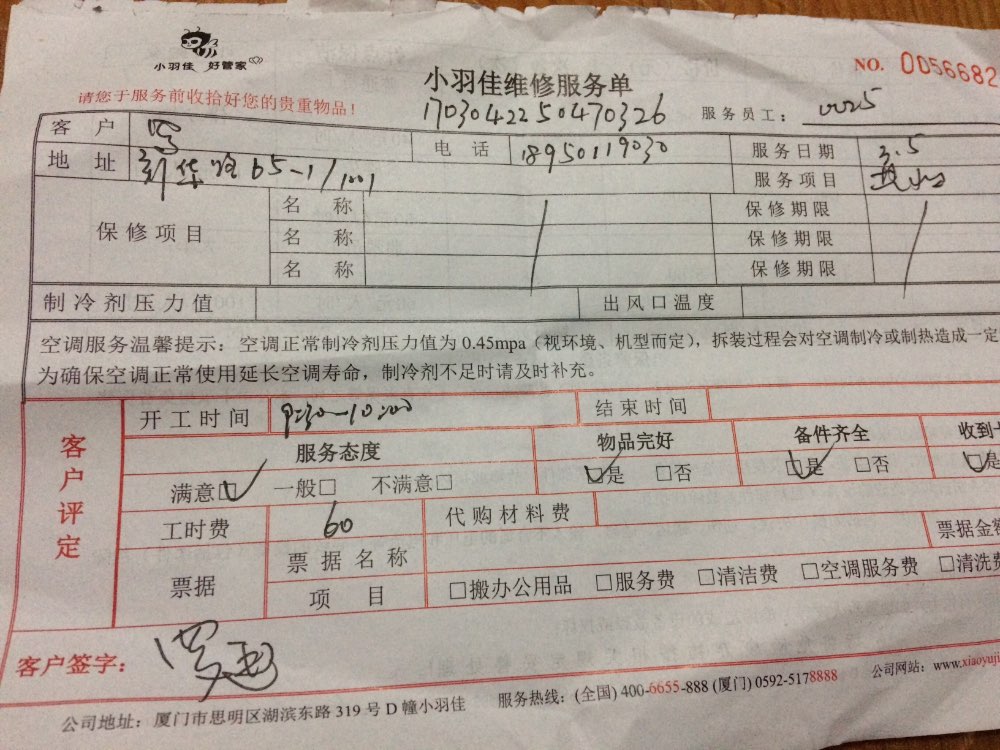 小羽佳 好管家
NO. 0056682
小羽佳维修服务单
请您于服务前收拾好您的贵重物品！
1703042250470326
服务员工： 0025
客户
电话 18950119030
服务日期 3.5
地址 65-1/1001
服务项目
保修项目
名称 保修期限
名称 保修期限
名称 保修期限
制冷剂压力值 出风口温度
空调服务温馨提示：空调正常制冷剂压力值为 0.45mpa（视环境、机型而定），拆装过程会对空调制冷或制热造成一定
为确保空调正常使用延长空调寿命，制冷剂不足时请及时补充。
客户评定
开工时间 9:30-10:00 结束时间
服务态度 物品完好 备件齐全 收到
满意□ 一般□ 不满意□ □是 □否 □是 □否 □是
工时费 60 代购材料费
票据 票据名称 票据金额
项目 □搬办公用品 □服务费 □清洁费 □空调服务费 □清洗费
客户签字：
公司地址：厦门市思明区湖滨东路 319 号 D 幢小羽佳 服务热线：(全国) 400-6655-888 (厦门) 0592-5178888 公司网站：www.xiaoyuji